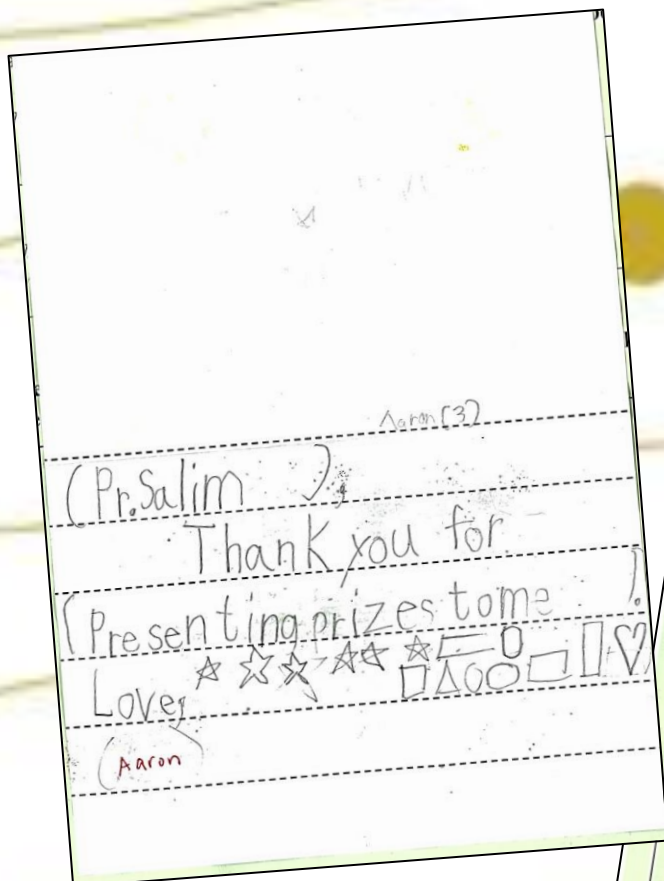 Aaron (3)
(Pr. Salim ),
Thank you for
(Presenting prizes to me ).
Love,
(Aaron)